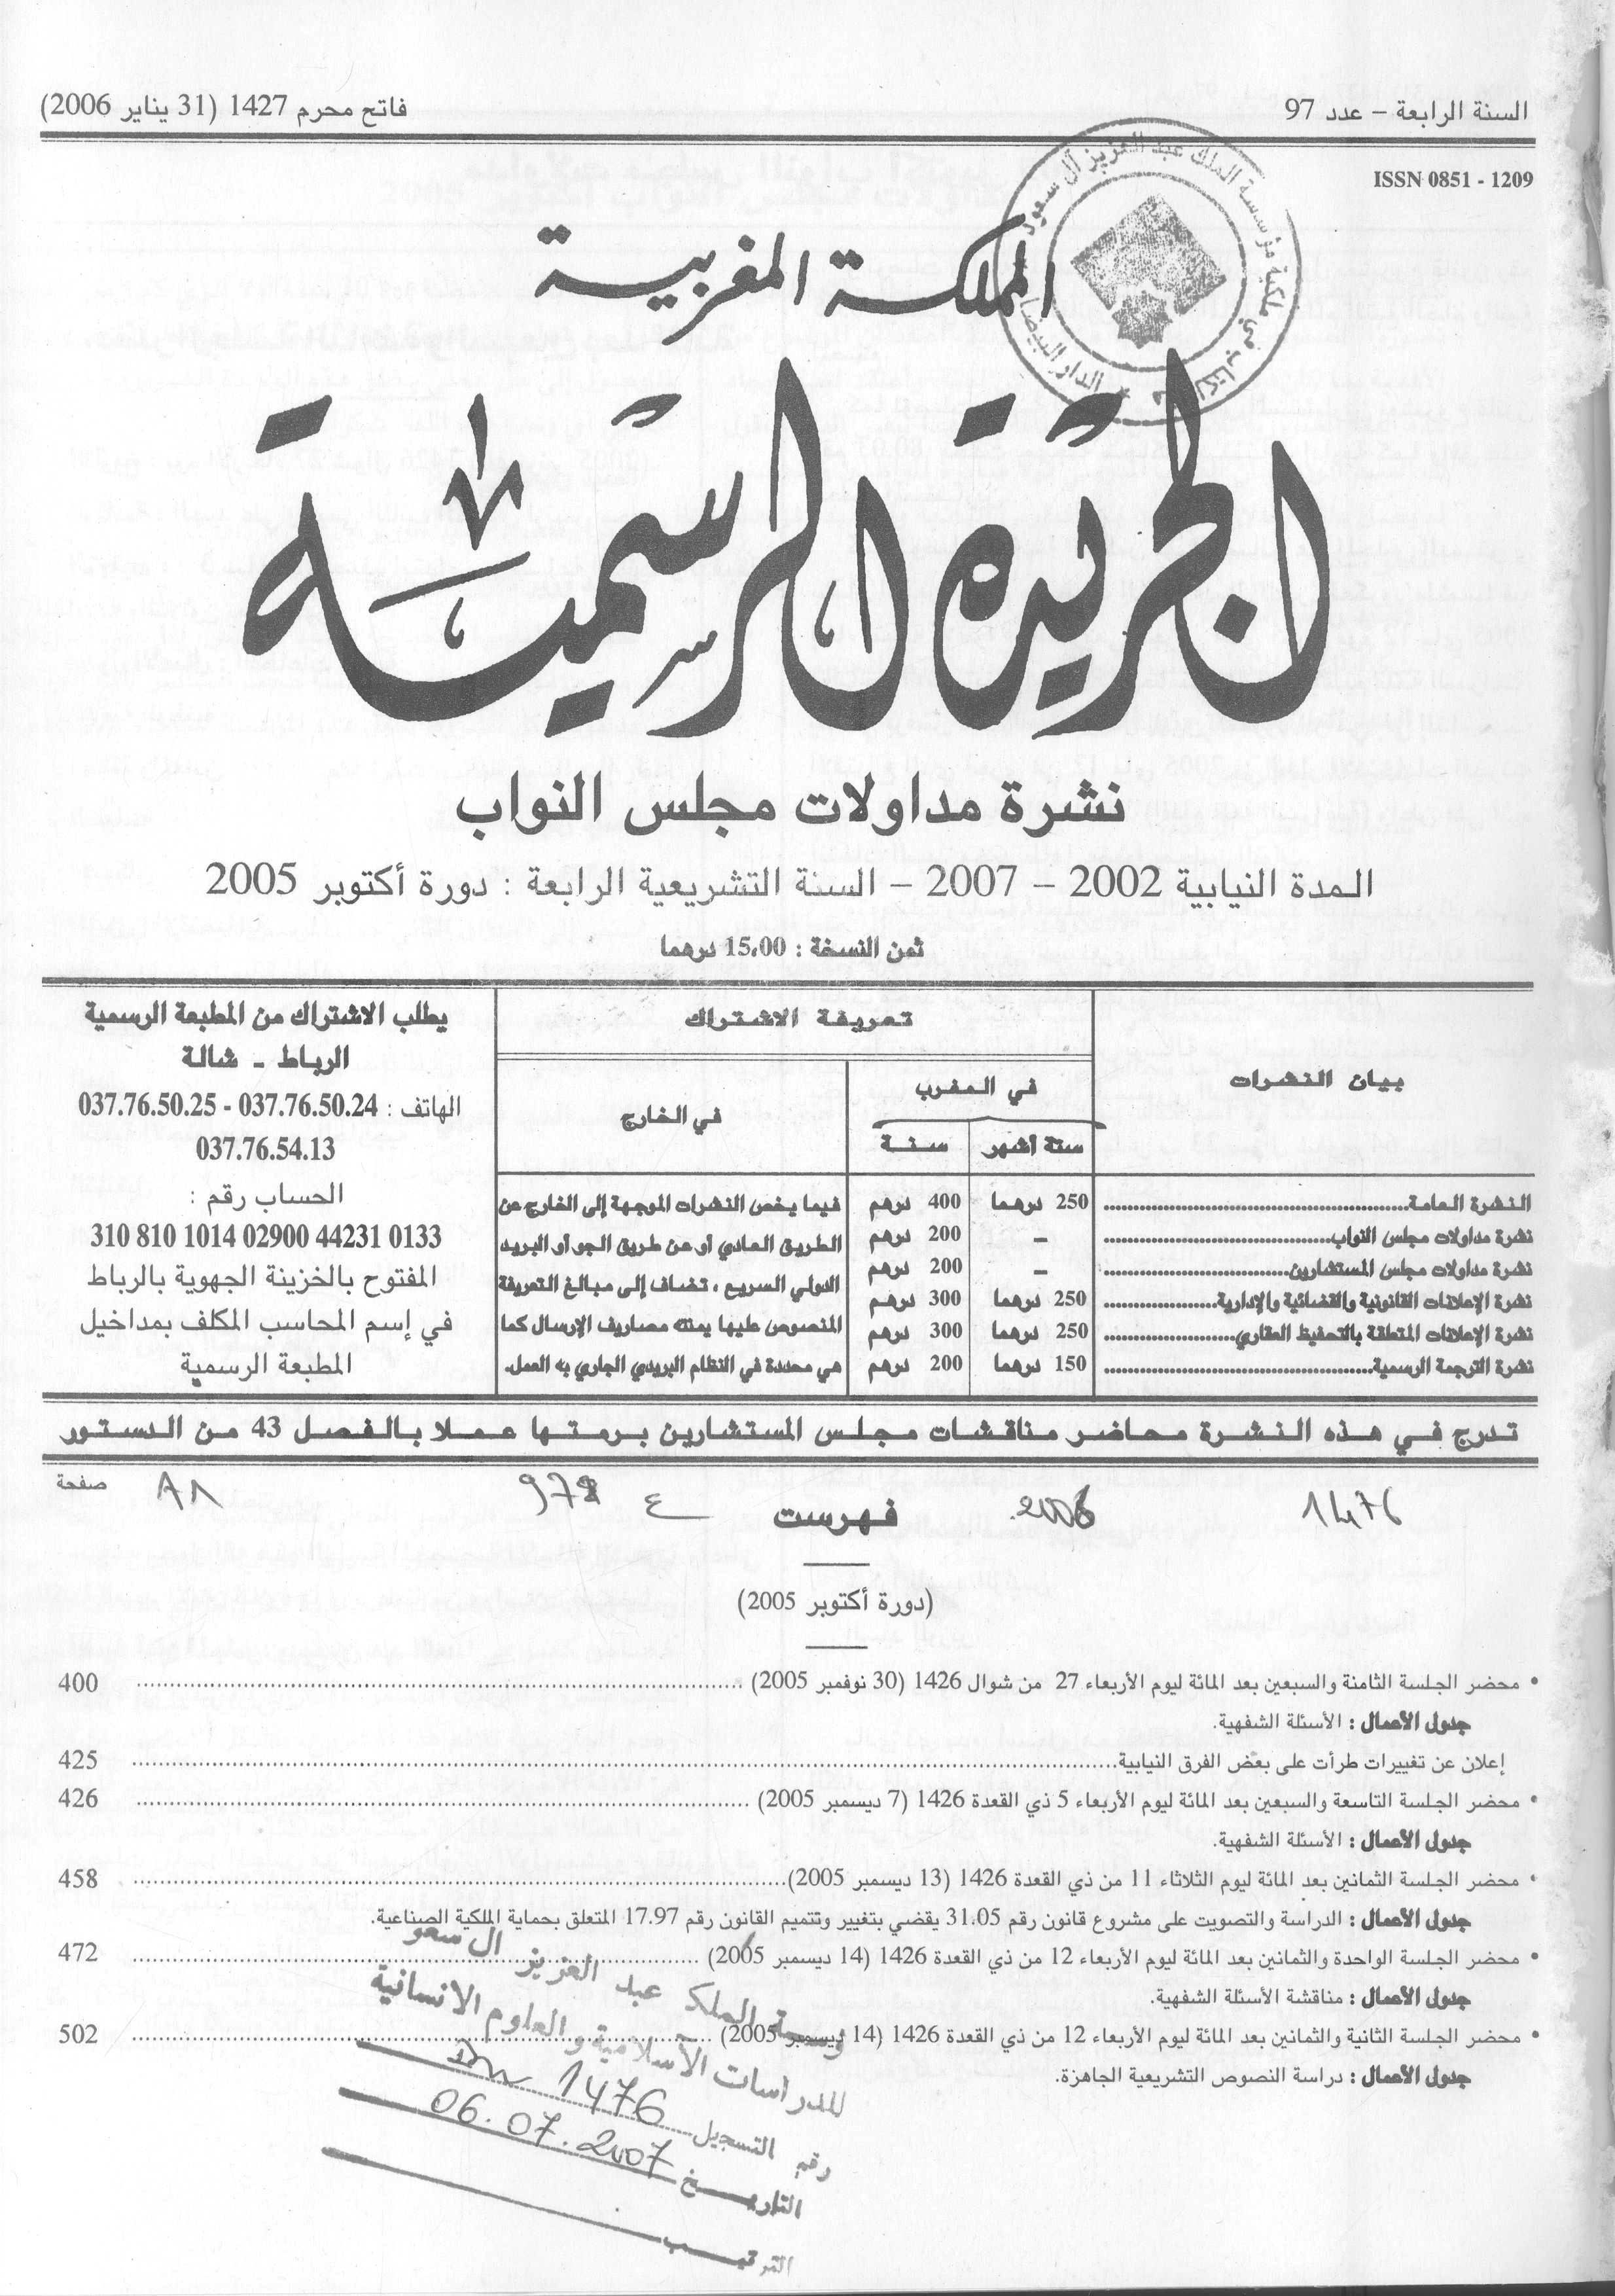 السنة الرابعة – عدد 97
فاتح محرم 1427 (31 يناير 2006)
ISSN 0851 - 1209
مؤسسة الملك عبد العزيز آل سعود
الدار البيضاء
المملكة المغربية
الجريدة الرسمية
نشرة مداولات مجلس النواب
المدة النيابية 2002 – 2007 – السنة التشريعية الرابعة : دورة أكتوبر 2005
ثمن النسخة : 15،00 درهما
بيان النشرات
تعريفة الاشتراك
في المغرب
ستة أشهر
سنة
في الخارج
النشرة العامة 250 درهما 400 درهم
نشرة مداولات مجلس النواب – 200 درهم
نشرة مداولات مجلس المستشارين – 200 درهم
نشرة الإعلانات القانونية والقضائية والإدارية 250 درهما 300 درهم
نشرة الإعلانات المتعلقة بالتحفيظ العقاري 250 درهما 300 درهم
نشرة الترجمة الرسمية 150 درهما 200 درهم
فيما يخص النشرات الموجهة إلى الخارج عن
الطريق العادي أو عن طريق الجو أو البريد
الدولي السريع ، تضاف إلى مبالغ التعريفة
المنصوص عليها يمنته مصاريف الإرسال كما
هي محددة في النظام البريدي الجاري به العمل.
يطلب الاشتراك من المطبعة الرسمية
الرباط - شالة
الهاتف : 037.76.50.24 - 037.76.50.25
037.76.54.13
الحساب رقم :
310 810 1014 02900 44231 0133
المفتوح بالخزينة الجهوية بالرباط
في إسم المحاسب المكلف بمداخيل
المطبعة الرسمية
تدرج في هذه النشرة محاضر مناقشات مجلس المستشارين برمتها عملا بالفصل 43 من الدستور
1476
2006
فهرست
ع
صفحة
(دورة أكتوبر 2005)
• محضر الجلسة الثامنة والسبعين بعد المائة ليوم الأربعاء 27 من شوال 1426 (30 نوفمبر 2005) 400
جدول الأعمال : الأسئلة الشفهية.
إعلان عن تغييرات طرأت على بعض الفرق النيابية 425
• محضر الجلسة التاسعة والسبعين بعد المائة ليوم الأربعاء 5 ذي القعدة 1426 (7 ديسمبر 2005) 426
جدول الأعمال : الأسئلة الشفهية.
• محضر الجلسة الثمانين بعد المائة ليوم الثلاثاء 11 من ذي القعدة 1426 (13 ديسمبر 2005) 458
جدول الأعمال : الدراسة والتصويت على مشروع قانون رقم 31.05 يقضي بتغيير وتتميم القانون رقم 17.97 المتعلق بحماية الملكية الصناعية.
• محضر الجلسة الواحدة والثمانين بعد المائة ليوم الأربعاء 12 من ذي القعدة 1426 (14 ديسمبر 2005) 472
جدول الأعمال : مناقشة الأسئلة الشفهية.
• محضر الجلسة الثانية والثمانين بعد المائة ليوم الأربعاء 12 من ذي القعدة 1426 (14 ديسمبر 2005) 502
جدول الأعمال : دراسة النصوص التشريعية الجاهزة.
الملك عبد العزيز آل سعو
للدراسات الاسلامية والعلوم الانسانية
رقم التسجيل 1476
التاريخ 06.07.2007
الترتيب